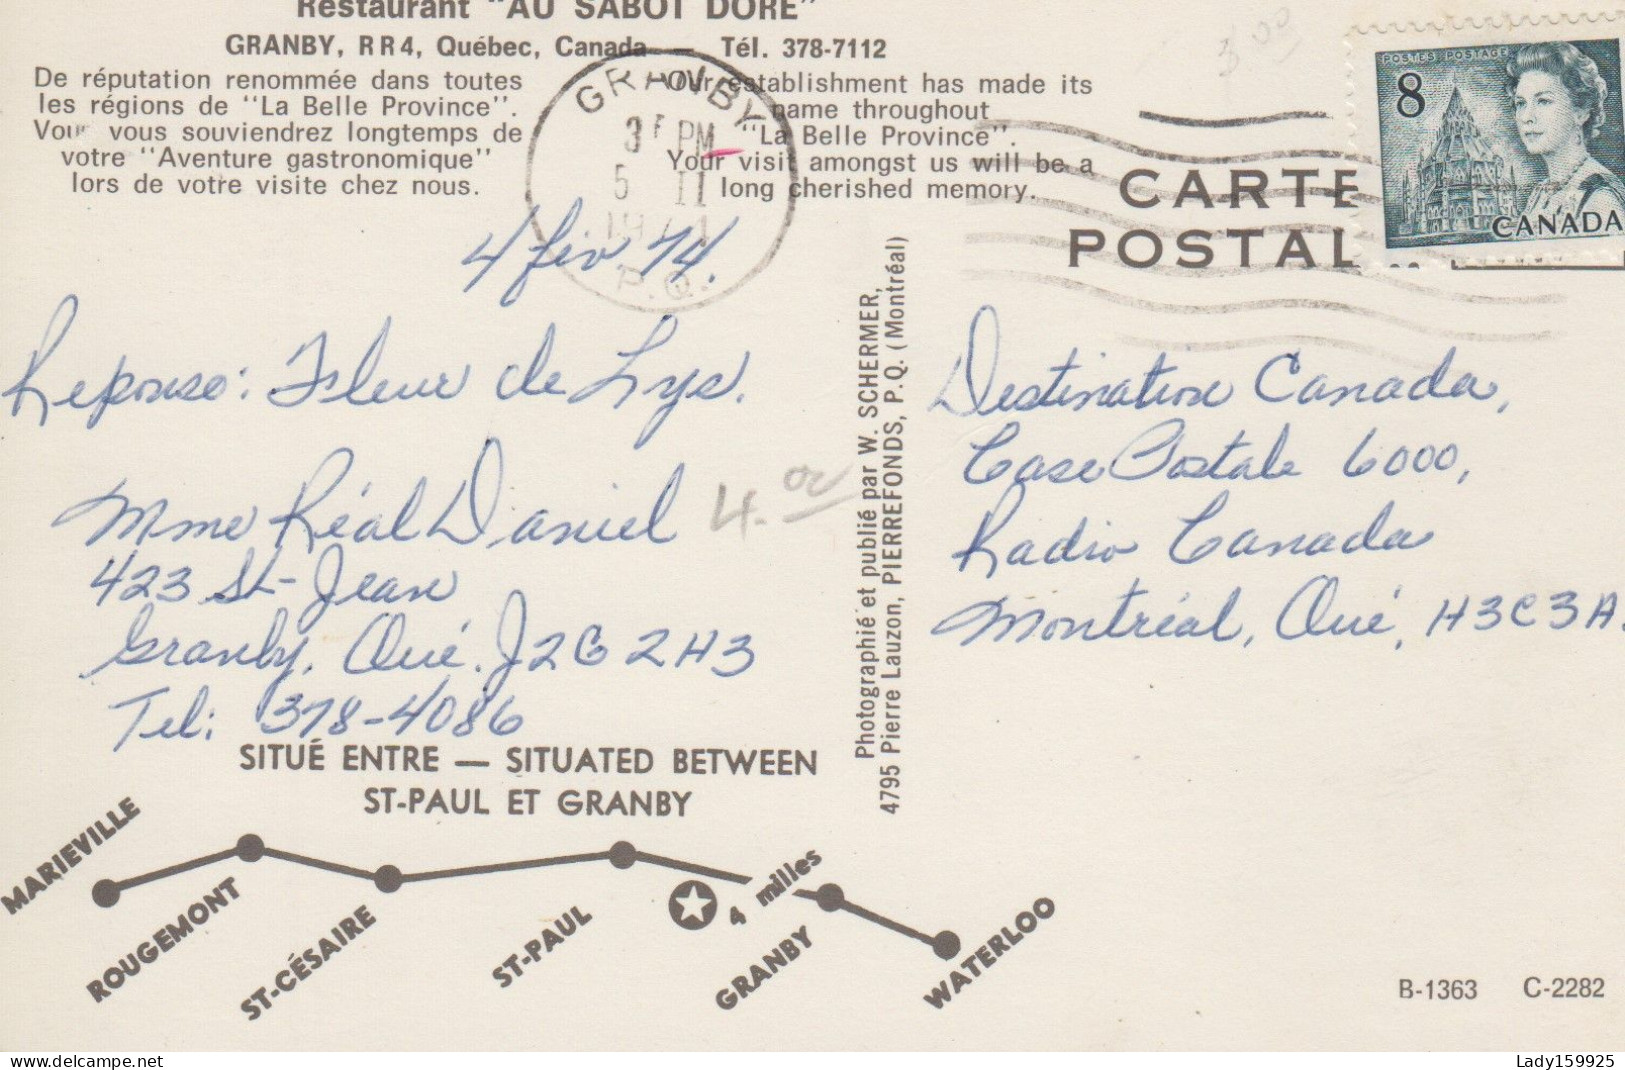 Restaurant "AU SABOT DORÉ"
GRANBY, RR4, Québec, Canada — Tél. 378-7112
De réputation renommée dans toutes
les régions de "La Belle Province".
Vous vous souviendrez longtemps de
votre "Aventure gastronomique"
lors de votre visite chez nous.
Our establishment has made its
name throughout
"La Belle Province".
Your visit amongst us will be a
long cherished memory.
GRANBY
PM
5 II
1974
P.Q.
3 00
POSTES POSTAGE
8
CANADA
CARTE
POSTAL
4 fév 74.
Réponse: Fleur de Lys.
Mme Réal Daniel
423 St-Jean
Granby, Qué. J2G 2H3
Tel: 378-4086
4.00
Photographié et publié par W. SCHERMER,
4795 Pierre Lauzon, PIERREFONDS, P.Q. (Montréal)
Destination Canada,
Case Postale 6000,
Radio Canada
Montréal, Qué, H3C3A
SITUÉ ENTRE — SITUATED BETWEEN
ST-PAUL ET GRANBY
MARIEVILLE
ROUGEMONT
ST-CÉSAIRE
ST-PAUL
4 milles
GRANBY
WATERLOO
B-1363 C-2282
delcampe.net
Lady159925